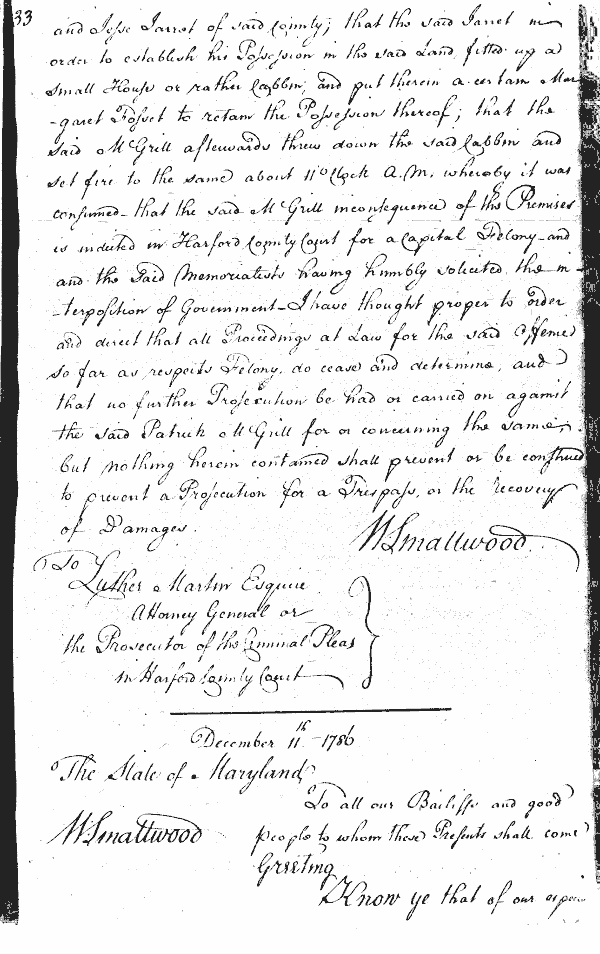 33
and Jesse Jarrot of said County; that the said Jarret in
order to establish his Possession in the said Land fitted up a
small House or rather Cabbin, and put therein a certain Mar
-garet Fosset to retain the Possession thereof; that the
said McGrill afterwards threw down the said Cabbin and
set fire to the same about 11 oClock A.M. whereby it was
consumed - that the said McGrill inconsequence of the Premises
is indicted in Harford County Court for a Capital Felony - and
and the said Memorialists having humbly solicited the in-
-terposition of Government - I have thought proper to order
and direct that all Proceedings at Law for the said Offence
so far as respects Felony, do cease and determine, and
that no further Prosecution be had or carried on against
the said Patrick McGrill for or concerning the same,
but nothing herein contained shall prevent or be construed
to prevent a Prosecution for a Trespass, or the recovery
of Damages.
WSmallwood
To
Luther Martin Esquire
Attorney General or
the Prosecutor of the Criminal Pleas
in Harford County Court
December 11th 1786
The State of Maryland
To all our Bailiffs and good
WSmallwood
people to whom these Presents shall come
Greeting
Know ye that of our especi